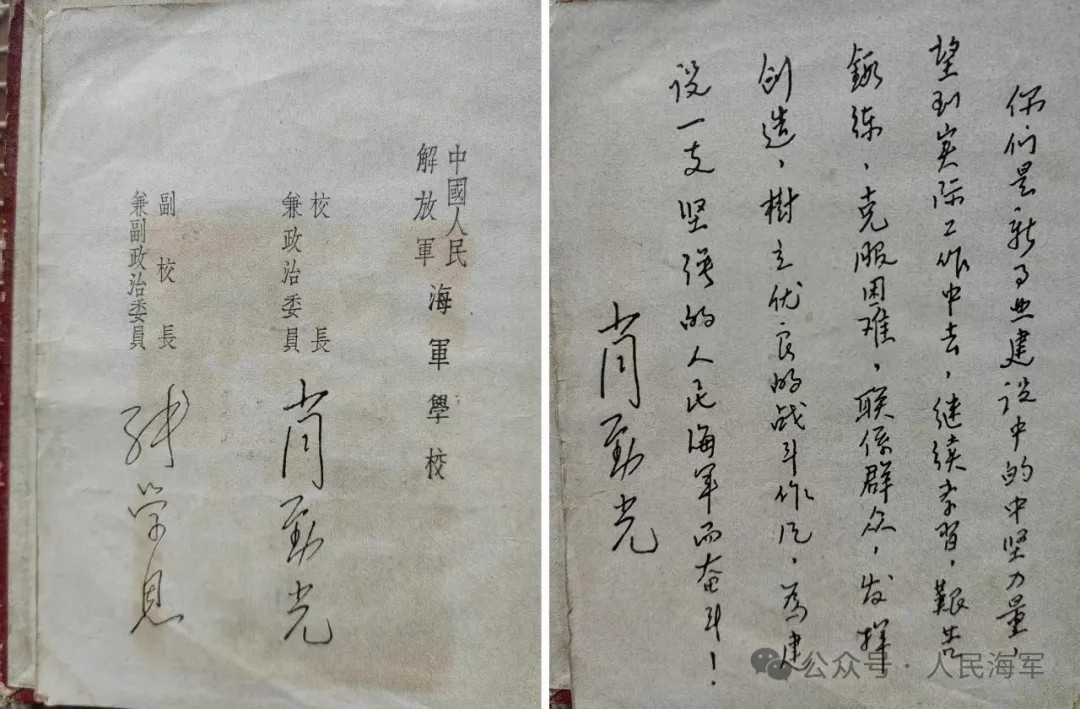 中國人民
解放軍
海軍學校
校長
兼政治委員
肖劲光
副校長
兼副政治委員
张学思
你们是新事业建设中的中坚力量，
望到实际工作中去，继续学習，艱苦
鍛练，克服困难，联係群众，发揮
创造，樹立优良的战斗作风，為建
设一支坚强的人民海军而奋斗！
肖劲光
公众号·人民海军